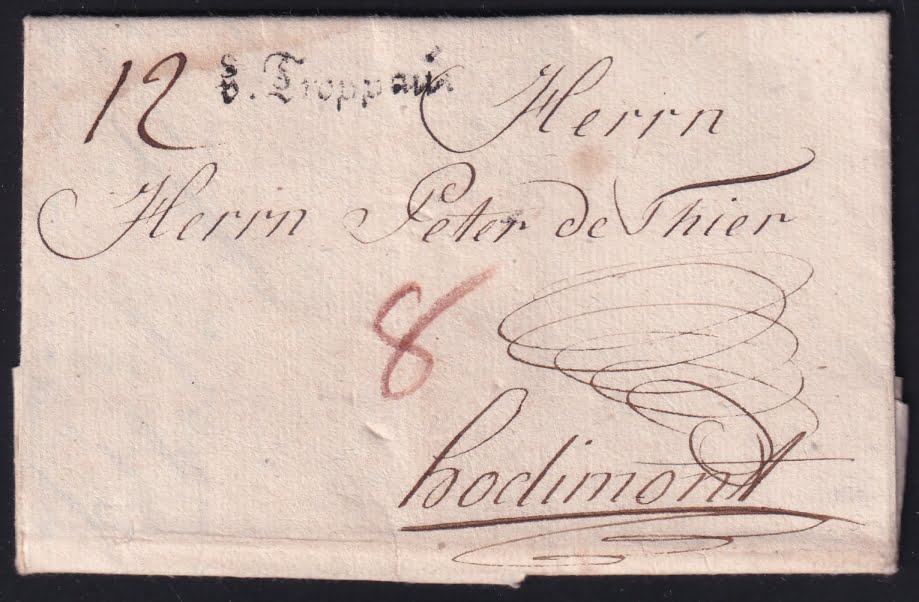 12 v. Troppau. Herrn
Herrn Peter de Thier
8
hodimont